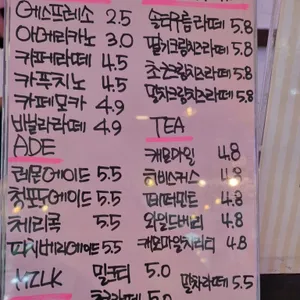 에스프레소 2.5
아메리카노 3.0
카페라떼 4.5
카푸치노 4.5
카페모카 4.9
바닐라라떼 4.9
ADE
레몬에이드 5.5
청포도에이드 5.5
체리콕 5.5
파지베리에이드 5.5
MILK
밀크티 5.0
초코라떼 5.0
솔트크림라떼 5.8
딸기크림치즈라떼 5.8
초코크림치즈라떼 5.8
말차크림치즈라떼 5.8
TEA
캐모마일 4.8
히비스커스 4.8
페퍼민트 4.8
와일드베리 4.8
캐모마일치리티 4.8
말차라떼 5.5